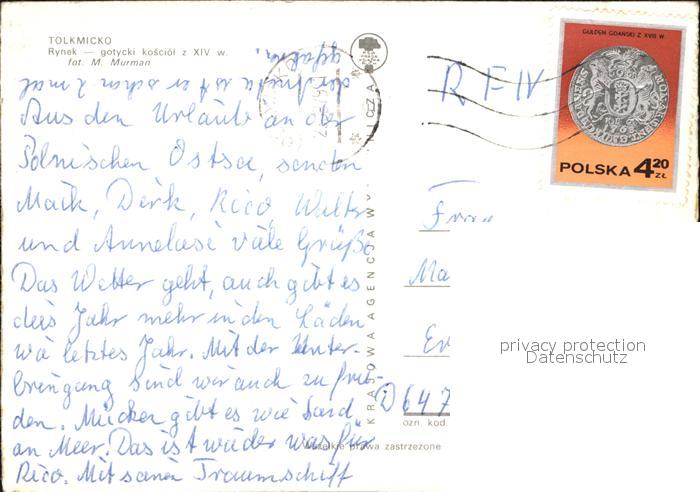 TOLKMICKO
Rynek — gotycki kościół z XIV w.
fot. M. Murman
Aus den Urlaub an der
Polnischen Ostsee, senden
Maik, Dirk, Rico, Walter
und Anneliese viele Grüße
Das Wetter geht, auch gibt es
dies Jahr mehr in den Läden
wie letztes Jahr. Mit der Unter-
bringung sind wir auch zufrie-
den. Mücken gibt es wie Sand
an Meer. Das ist wieder was für
Rico. Mit seinen Traumschiff
der Freda ist er schon 2 mal
gefahren.
KRAJOWA AGENCJA W
ozn. kod.
Wszelkie prawa zastrzeżone
GULDEN GDAŃSKI Z XVIII W.
POLSKA 4.20 ZŁ
Frau
Ma
D 647
privacy protection
Datenschutz